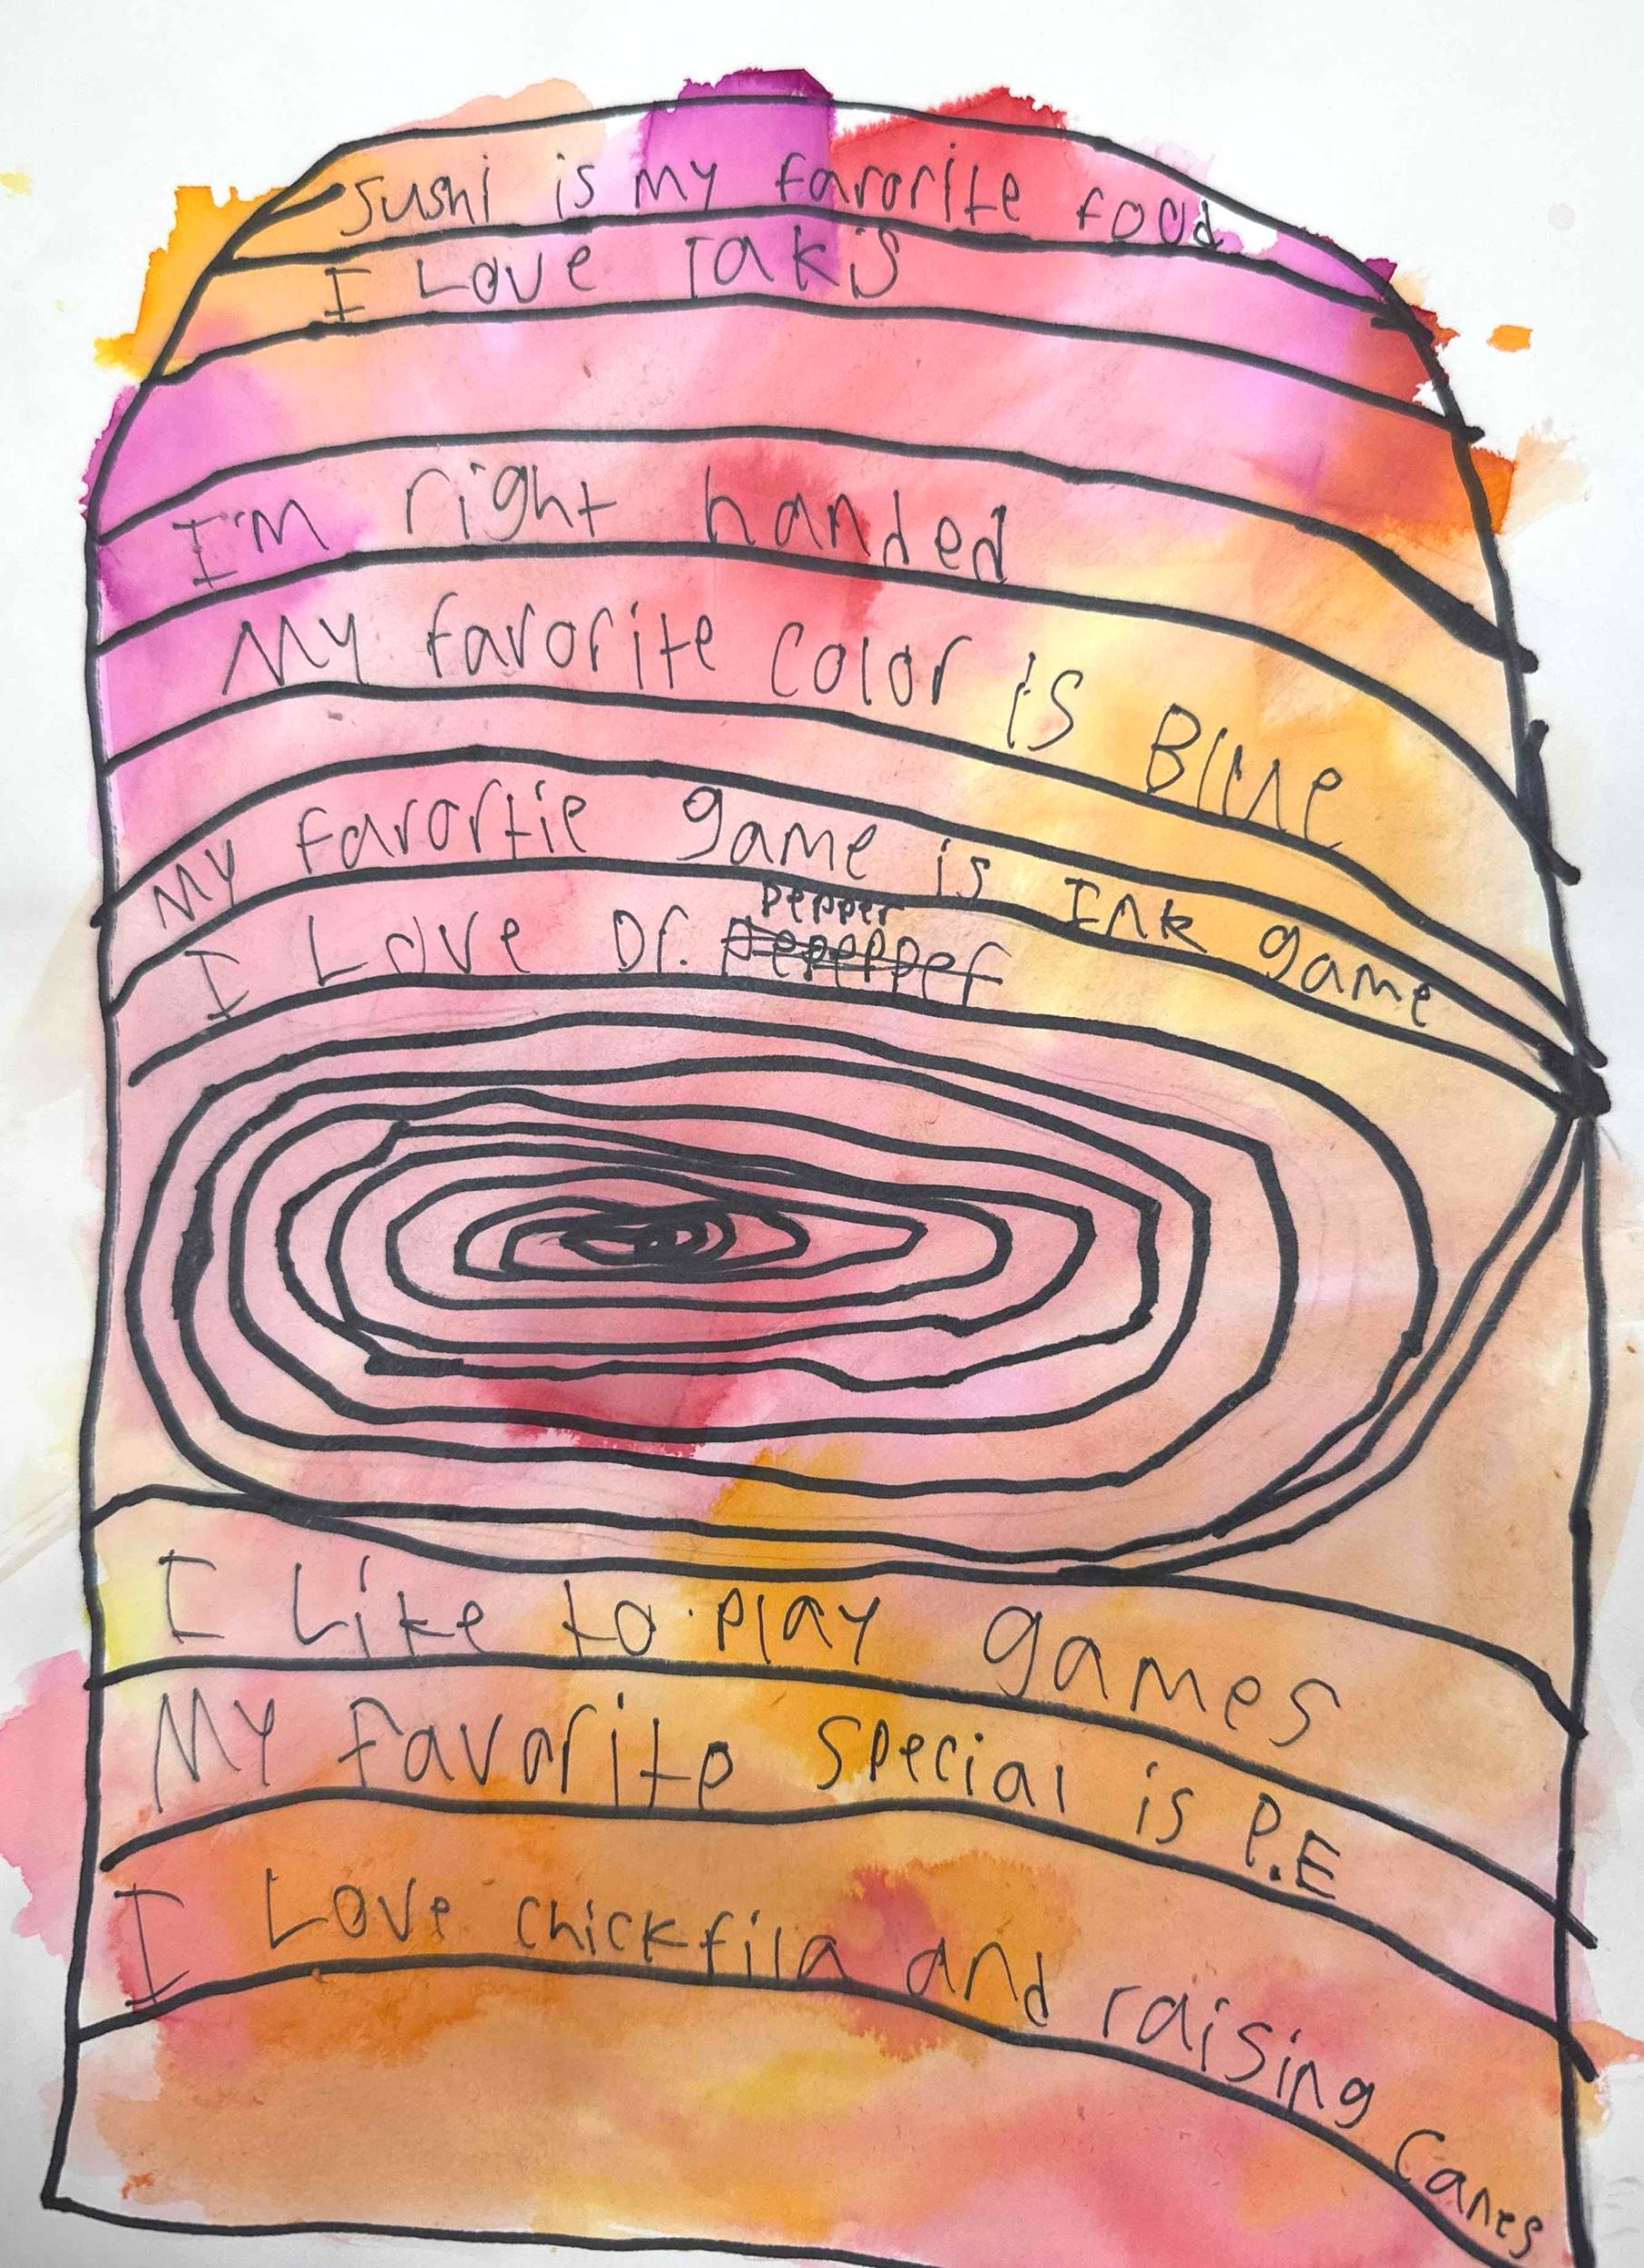 sushi is my favorite food
I Love Takis
I'm right handed
My favorite color is Blue
My favortie game is Ink game
I Love Dr. pepper
I Like to play games
My favorite special is P.E
I Love chickfila and raising canes